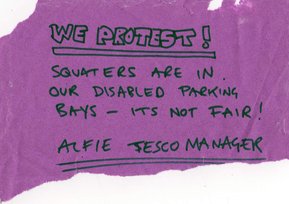 WE PROTEST!
SQUATERS ARE IN.
OUR DISABLED PARKING
BAYS – ITS NOT FAIR!
ALFIE TESCO MANAGER